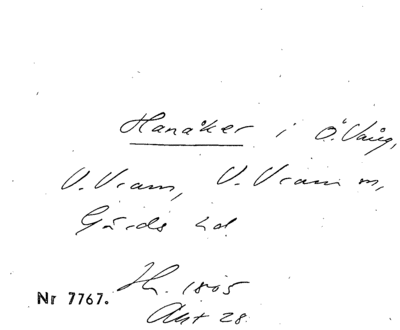 Hanåker i Ö. Vång,
V. Vram, V. Vram m,
Gärds hd
Nr 7767. Hr. 1805
Akt 28.